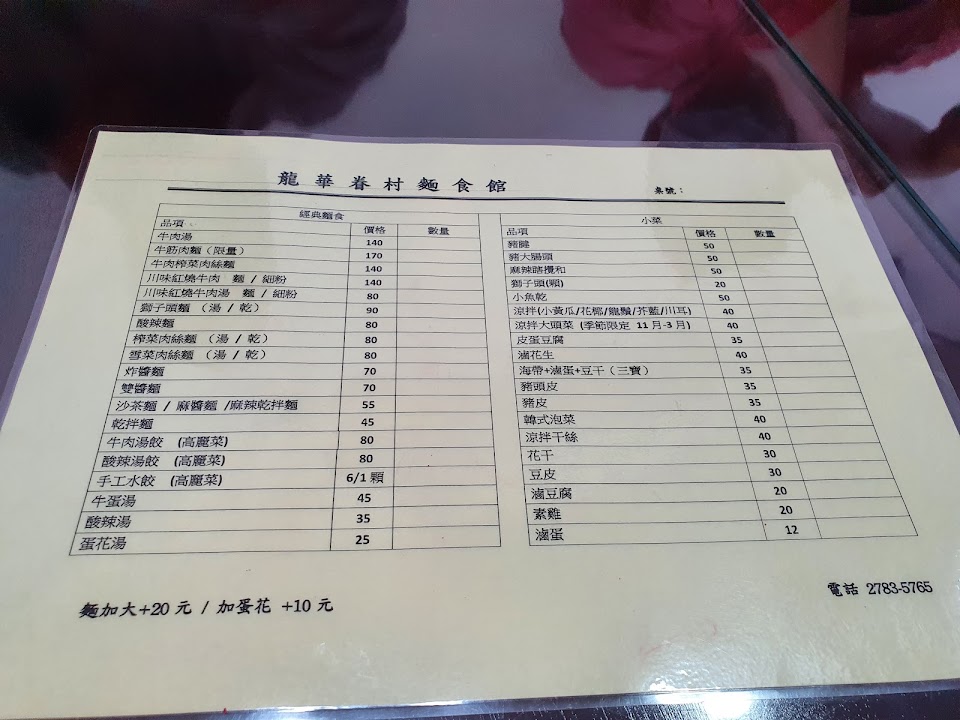 龍華眷村麵食館
桌號：
經典麵食
品項 價格 數量
牛肉湯 140
牛筋肉麵（限量） 170
牛肉榨菜肉絲麵 140
川味紅燒牛肉 麵 / 細粉 140
川味紅燒牛肉湯 麵 / 細粉 80
獅子頭麵 （湯 / 乾） 90
酸辣麵 80
榨菜肉絲麵 （湯 / 乾） 80
雪菜肉絲麵 （湯 / 乾） 80
炸醬麵 70
雙醬麵 70
沙茶麵 / 麻醬麵 /麻辣乾拌麵 55
乾拌麵 45
牛肉湯餃 (高麗菜) 80
酸辣湯餃 (高麗菜) 80
手工水餃 (高麗菜) 6/1 顆
牛蛋湯 45
酸辣湯 35
蛋花湯 25
小菜
品項 價格 數量
豬腱 50
豬大腸頭 50
麻辣豬攪和 50
獅子頭(顆) 20
小魚乾 50
涼拌(小黃瓜/花椰/龍鬚/芥藍/川耳) 40
涼拌大頭菜 (季節限定 11月-3月) 40
皮蛋豆腐 35
滷花生 40
海帶+滷蛋+豆干（三寶） 35
豬頭皮 35
豬皮 35
韓式泡菜 40
涼拌干絲 40
花干 30
豆皮 30
滷豆腐 20
素雞 20
滷蛋 12
麵加大+20 元 / 加蛋花 +10 元
電話 2783-5765